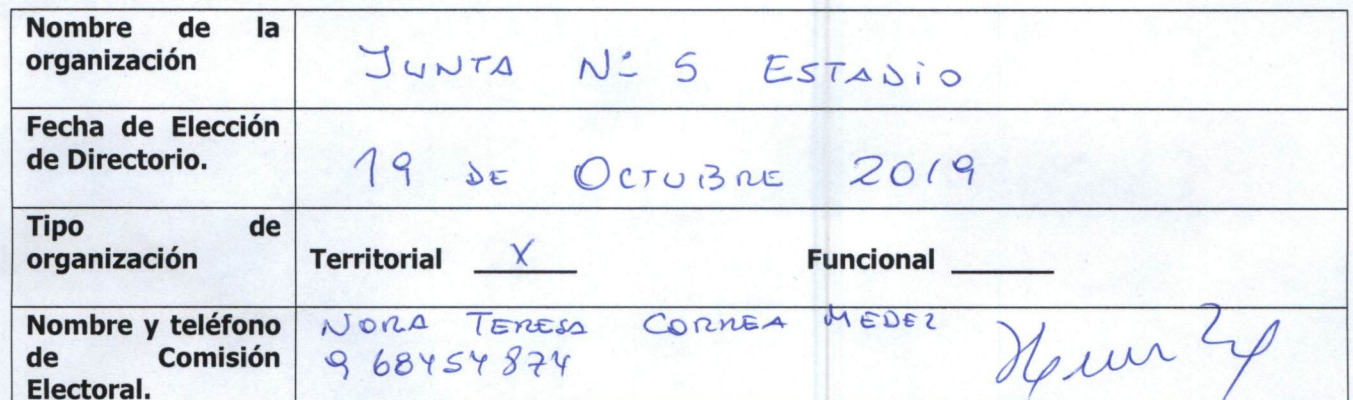 Nombre de la
organización
JUNTA Nº 5 ESTADIO
Fecha de Elección
de Directorio.
19 DE OCTUBRE 2019
Tipo de
organización
Territorial X Funcional ______
Nombre y teléfono
de Comisión
Electoral.
NORA TERESA CORREA MEDEZ
9 68454874